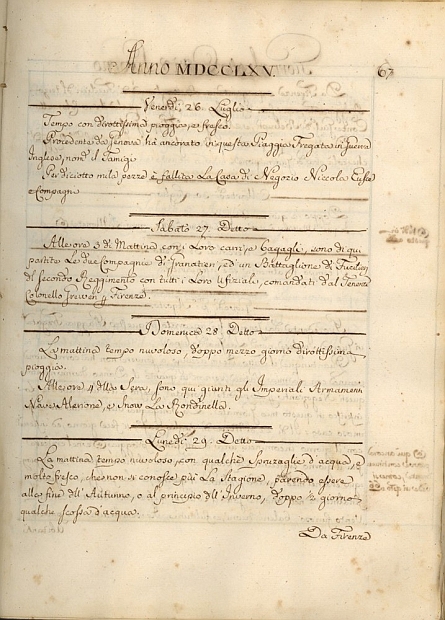 Anno MDCCLXV.
67
Venerdi, 26. Luglio
Tempo con dirottissima pioggia, e fresco.
Procedente da Genova ha ancorato in questa Piaggia Fregata in guerra
Inglese, nom.ta il Tamigi.
Per diciotto mila pezze è fallita La Casa di Negozio Niccola
e Compagni
Sabato 27. Detto
Alle ore 3 di Mattina con i Loro carri, e bagagli, sono di qui
partite Le due Compagnie di Granatieri, ed un Battaglione di Fucilieri
del secondo Reggimento con tutti i Loro Ufiziali, comandati dal Tenente
Colonello p Firenze.
Domenica 28. Detto
La mattina tempo nuvoloso, doppo mezzo giorno dirottissima
pioggia.
Alle ore 4 della Sera, sono qui giunti gli Imperiali Armamenti
Nave Alerione, e Snow La Rondinella.
Lunedi 29. Detto
La mattina tempo nuvoloso, con qualche Spruzaglia d'acqua, e
molto fresco, che non si conosce più La Stagione, parendo essere
alla fine dell'Autunno, o al principio dell'Inverno, doppo ½ giorno
qualche scossa d'acqua.
Da Firenze